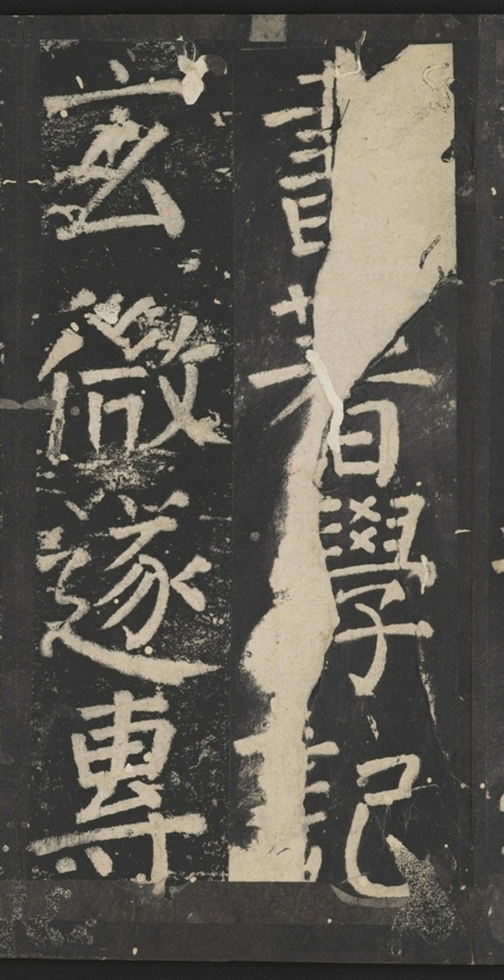 書著學記
玄微遂專